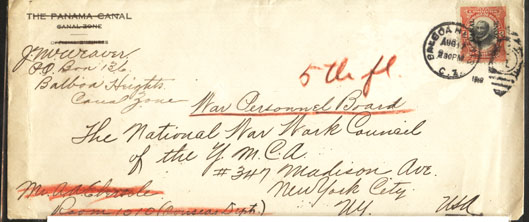 THE PANAMA CANAL
CANAL ZONE
J W Weaver
P.O. Box 136
Balboa Heights
Canal Zone
BALBOA H
AUG 1
2 30PM
C.Z.
5th fl.
War Personnel Board
The National War Work Council
of the Y M.C.A.
#347 Madison Ave.
New York City
NY USA
Mr.
Room 1010